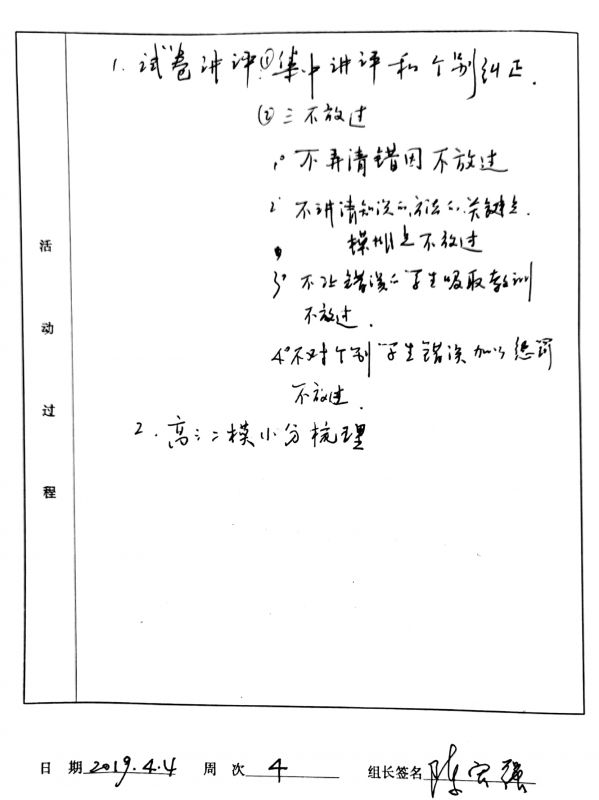 1. 试卷讲评:①集中讲评和个别纠正.
②三不放过
1° 不弄清错因不放过
2° 不讲清知识的、方法的、关键点.
模糊点不放过
3° 不让错误的学生吸取教训
不放过.
4° 不对个别学生错误加以惩罚
不放过.
2. 高三二模小分梳理
活动过程
日 期 2019.4.4 周 次 4 组长签名 陈宏强